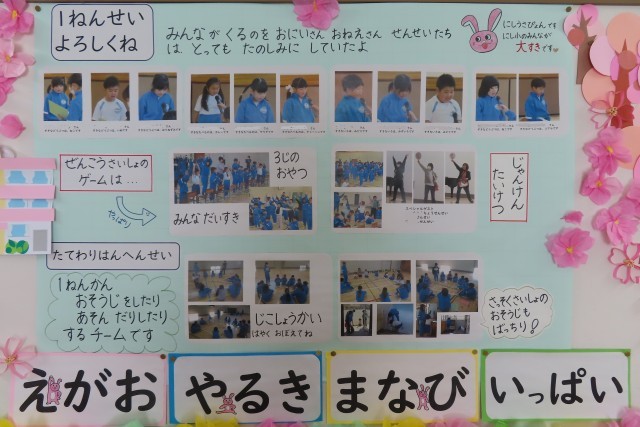 1ねんせい
よろしくね
みんながくるのを おにいさん おねえさん せんせいたち
は とっても たのしみに していたよ
にしうさぴょんです
にし小のみんなが
大すきです
ぜんこうさいしょの
ゲームは…
やっぱり
3じの
おやつ
みんなだいすき
じゃんけん
たいけつ
たてわりはんへんせい
1ねんかん
おそうじをしたり
あそんだりしたり
するチームです
じこしょうかい
はやくおぼえてね
さっそくさいしょの
おそうじも
ばっちり!
えがお
やるき
まなび
いっぱい